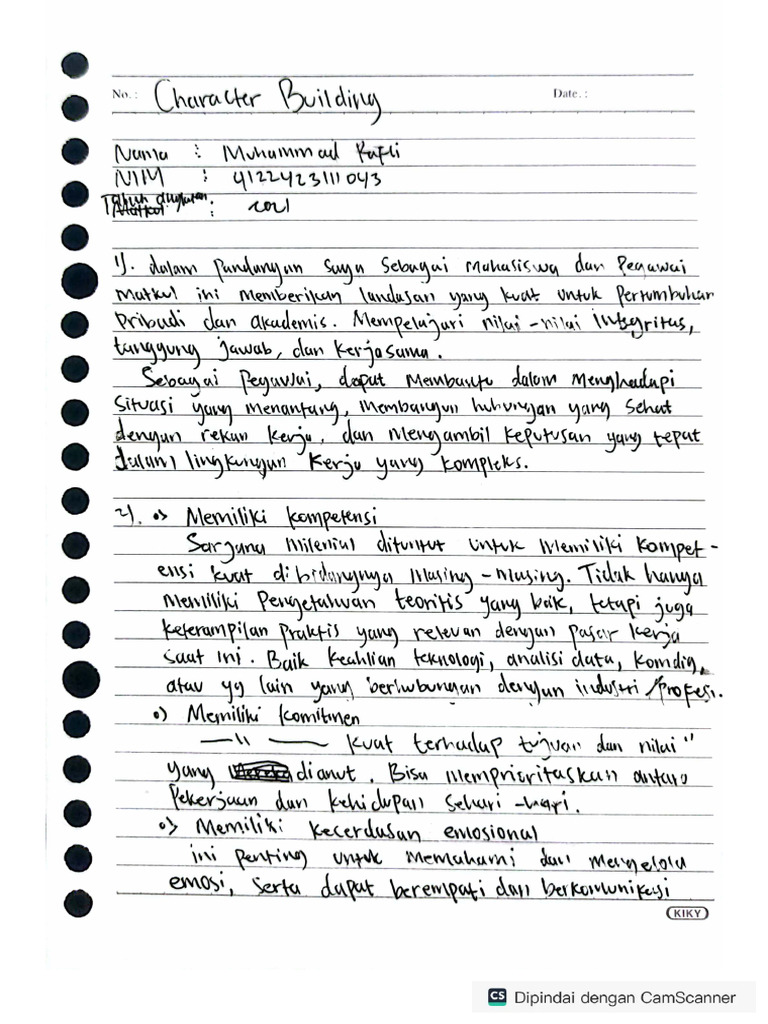 No.: Character Building Date.:
Nama : Muhammad Rafli
NIM : 4122423111043
Tahun angkatan : 2021
1). dalam Pandangan saya sebagai mahasiswa dan Pegawai
Matkul ini memberikan landasan yang kuat untuk Pertumbuhan
Pribadi dan akademis. Mempelajari nilai-nilai integritas,
tanggung jawab, dan kerjasama.
Sebagai Pegawai, dapat membantu dalam menghadapi
Situasi yang menantang, membangun hubungan yang sehat
dengan rekan kerja, dan mengambil keputusan yang tepat
dalam lingkungan kerja yang kompleks.
2). •> Memiliki kompetensi
Sarjana milenial dituntut untuk memiliki kompet-
ensi kuat dibidangnya masing-masing. Tidak hanya
memiliki Pengetahuan teoritis yang baik, tetapi juga
keterampilan praktis yang relevan dengan pasar kerja
saat ini. Baik keahlian teknologi, analisi data, komdig,
atau yg lain yang berhubungan dengan industri/profesi.
•) Memiliki komitmen
—"— kuat terhadap tujuan dan nilai"
yang dianut. Bisa memprioritaskan antara
Pekerjaan dan kehidupan sehari-hari.
•> Memiliki kecerdasan emosional
ini penting untuk memahami dan mengelola
emosi, serta dapat berempati dan berkomunikasi
KIKY
CS Dipindai dengan CamScanner